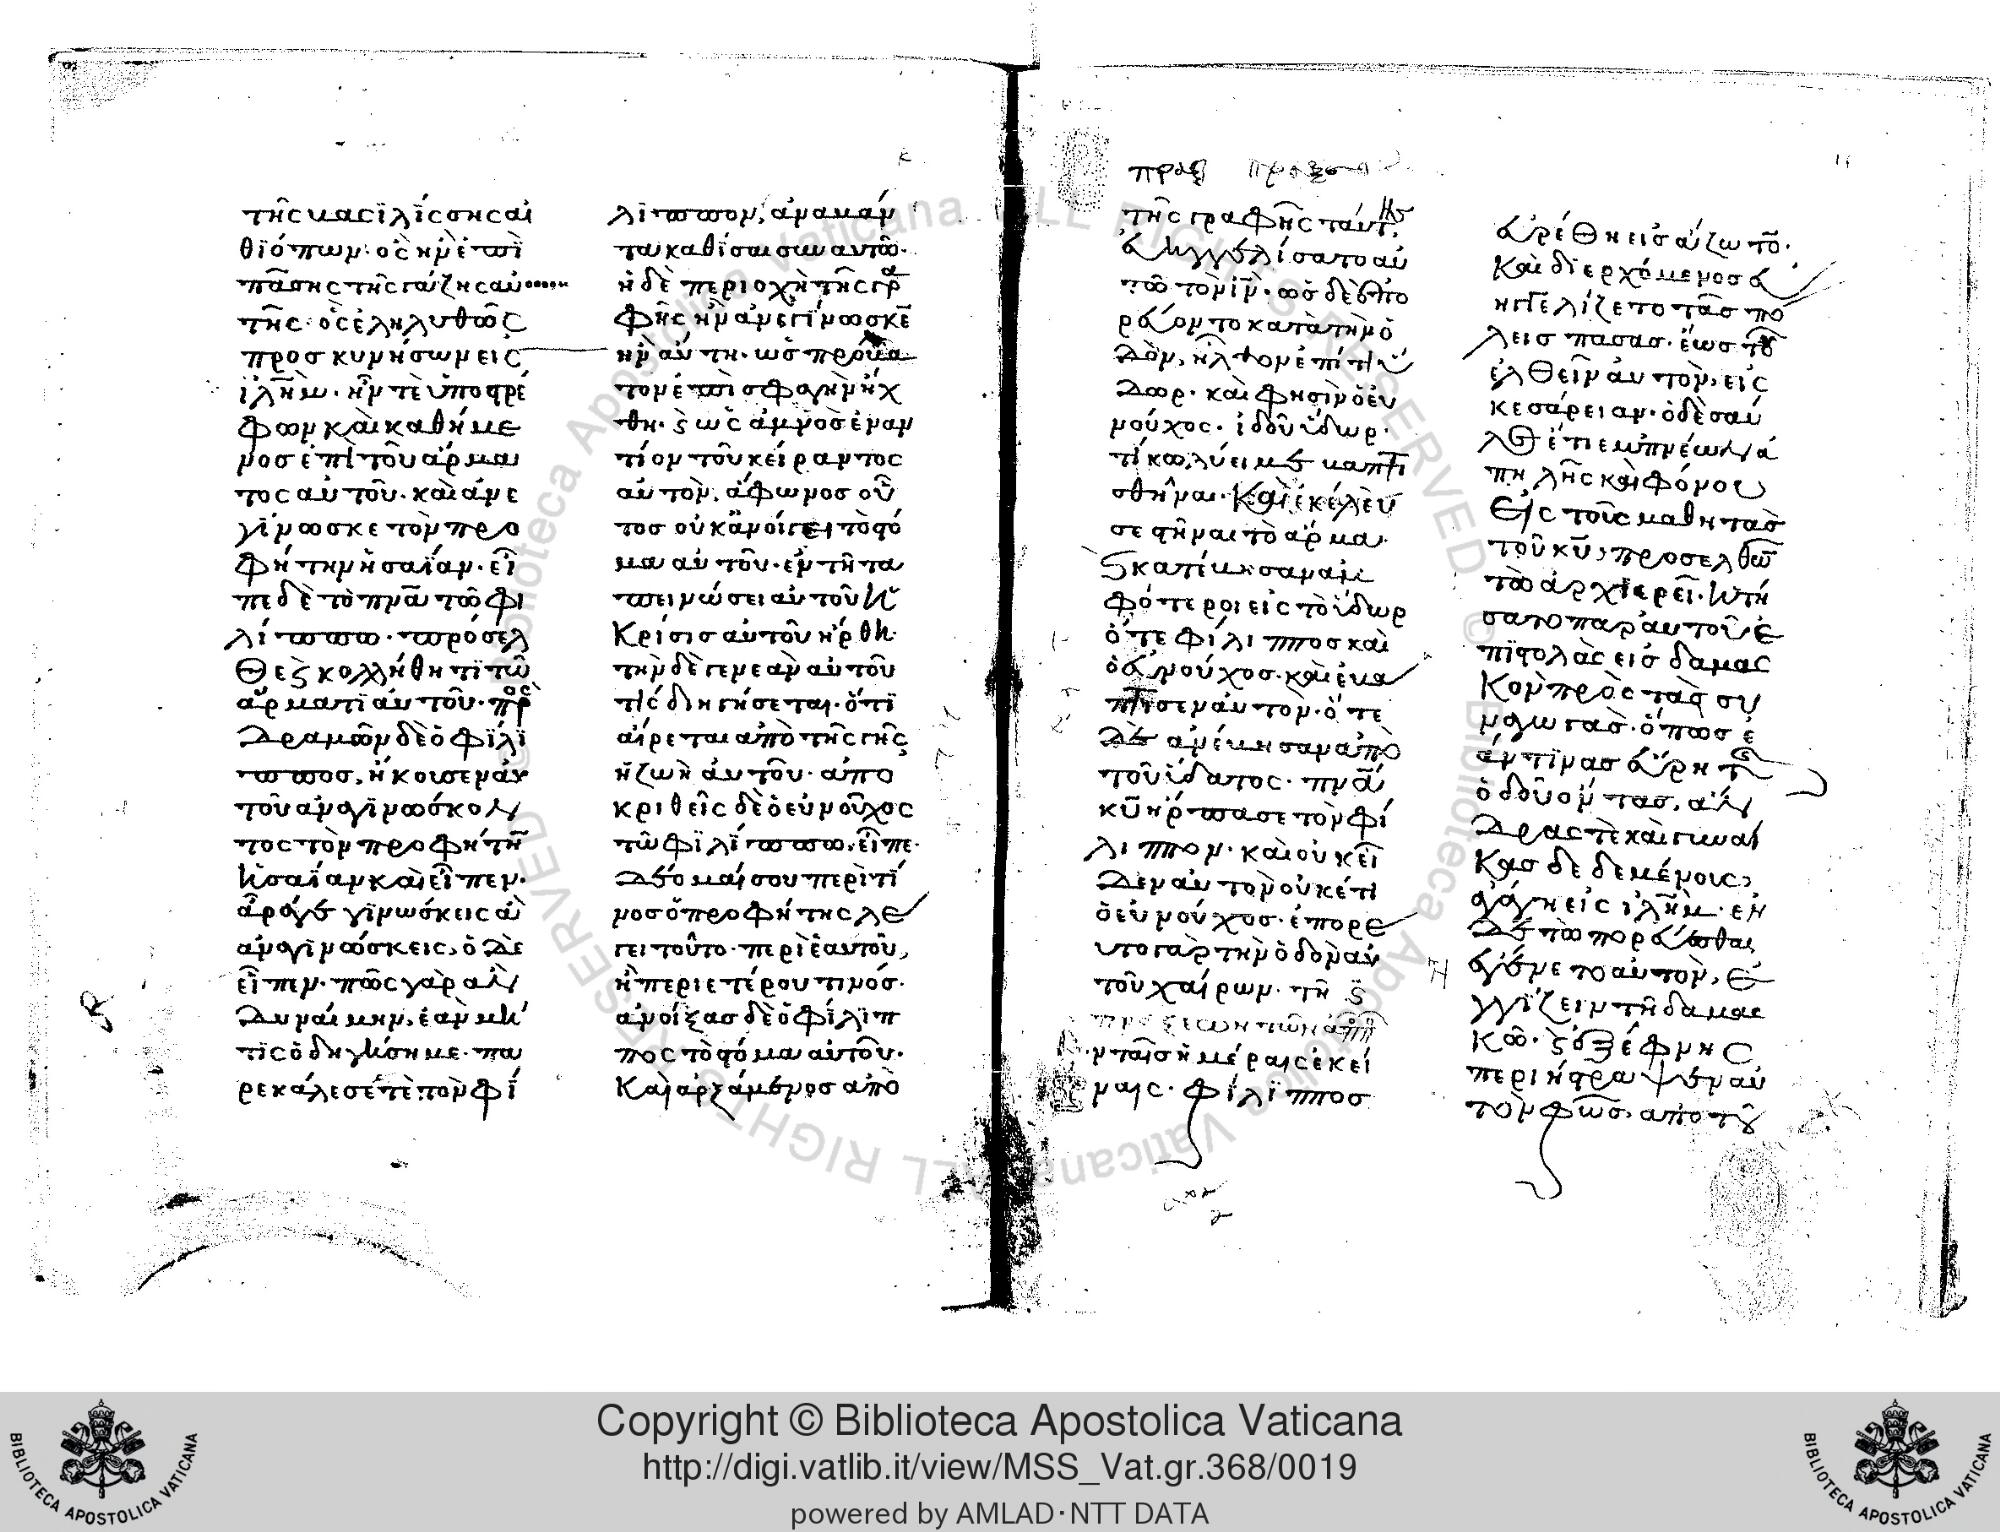 τῆς βασιλίσσης αἰ
θϊόπων· ὃς ἦν ἐπὶ
πάσης τῆς γάζης αὐ
τῆς· ὃς ἐληλυθὼς
προσκυνήσων εἰς
ἱλῆμ· ἦν τὲ ὑποστρέ
φων καὶ καθήμε
νος ἐπὶ τοῦ ἅρμα
τος αὐτοῦ· καὶ ἀνε
γίνωσκε τὸν προ
φήτην ἠσαΐαν· εἶ
πε δὲ τὸ πνᾶ τῶ φι
λίππω· πρόσελ
θε ϗ κολλήθητι τῶ
ἅρματι αὐτοῦ· προς
δραμὼν δὲ ὁ φίλι
ππος, ἤκουσεν αὐ
τοῦ ἀναγινώσκον
τος τὸν προφήτην
ἠσαΐαν καὶ εἶπεν·
ἆρά γε γινώσκεις ἃ
ἀναγινώσκεις, ὁ δὲ
εἶπεν· πῶς γὰρ ἂν
δυναίμην, ἐὰν μή
τις ὁδηγήση με· πα
ρεκάλεσέ τε τὸν φί
λιππον, ἀναβάν
τα καθίσαι σὺν αὐτῶ·
ἡ δὲ περιοχὴ τῆς γρα
φῆς ἣν ἀνεγίνωσκεν
ἦν αὕτη· ὡς πρόβα
τον ἐπὶ σφαγὴν ἤχ
θη· ϗ ὡς ἀμνὸς ἐναν
τίον τοῦ κείραντος
αὐτὸν, ἄφωνος οὕ
τος οὐκ ἀνοίγει τὸ στό
μα αὐτοῦ· ἐν τῆ τα
πεινώσει αὐτοῦ ἡ
κρίσις αὐτοῦ ἤρθη·
τὴν δὲ γενεὰν αὐτοῦ
τίς διηγήσεται· ὅτι
αἴρεται ἀπὸ τῆς γῆς
ἡ ζωὴ αὐτοῦ· ἀπο
κριθεὶς δὲ ὁ εὐνοῦχος
τῶ φιλίππω, εἶπε·
δέομαί σου περὶ τί
νος ὁ προφήτης λέ
γει τοῦτο· περὶ ἑαυτοῦ,
ἢ περὶ ἑτέρου τινός·
ἀνοίξας δὲ ὁ φίλιπ
πος τὸ στόμα αὐτοῦ·
καὶ ἀρξάμενος ἀπὸ
πραξ
τῆς γραφῆς ταύτης
εὐηγγελίσατο αὐ
τῶ τὸν ἰν̄· ὡς δὲ ἐπο
ρεύοντο κατὰ τὴν ὁ
δὸν, ἦλθον ἐπί τι ὕ
δωρ· καὶ φησὶν ὁ εὐ
νούχος· ἰδοῦ ὕδωρ·
τί κωλύει με βαπτι
σθῆναι· καὶ ἐκέλευ
σε στῆναι τὸ ἅρμα·
ϗ κατέβησαν ἀμ
φότεροι εἰς τὸ ὕδωρ
ὅ τε φίλιππος καὶ
ὁ εὐνούχος· καὶ ἐβα
πτισεν αὐτὸν· ὅτε
δὲ ἀνέβησαν ἀπὸ
τοῦ ὕδατος· πνᾶ
κῡ ἥρπασε τὸν φί
λιππον· καὶ οὐκ εἶ
δεν αὐτὸν οὐκέτι
ὁ εὐνούχος· ἐπορε
υτο γὰρ τὴν ὁδὸν αὐ
τοῦ χαίρων· τῆ ϛ
ν ταῖς ἡμέραις ἐκεί
ναις· φίλιππος
εὑρέθη εἰς ἄζωτον·
καὶ διερχόμενος εὐ
ηγγελίζετο τὰς πό
λεις πάσας· ἕως τοῦ
ἐλθεῖν αὐτὸν, εἰς
κεσάρειαν· ὁ δὲ σαῦ
λος ἔτι ἐμπνέων ἀ
πηλῆς καὶ φόνου
εἰς τοὺς μαθητὰς
τοῦ κῡ, προσελθὼν
τῶ ἀρχιερεῖ· ἠτή
σατο παρ' αὐτοῦ ἐ
πιστολὰς εἰς δαμας
κὸν πρὸς τὰς συ
ναγωγὰς· ὅπως ἐ
άν τινας εὕρη τῆς
ὁδοῦ ὄντας, ἄν
δρας τὲ καὶ γυναῖ
κας δεδεμένους,
ἀγάγη εἰς ἱλῆμ· ἐν
δὲ τῶ πορεύεσθαι,
ἐγένετο αὐτὸν, ἐ
γγίζειν τῆ δαμας
κῶ· ϗ ἐξέφνης
περιήστραψεν αὐ
τὸν φῶς, ἀπὸ τοῦ
Copyright © Biblioteca Apostolica Vaticana
http://digi.vatlib.it/view/MSS_Vat.gr.368/0019
powered by AMLAD·NTT DATA
BIBLIOTECA APOSTOLICA VATICANA
BIBLIOTECA APOSTOLICA VATICANA